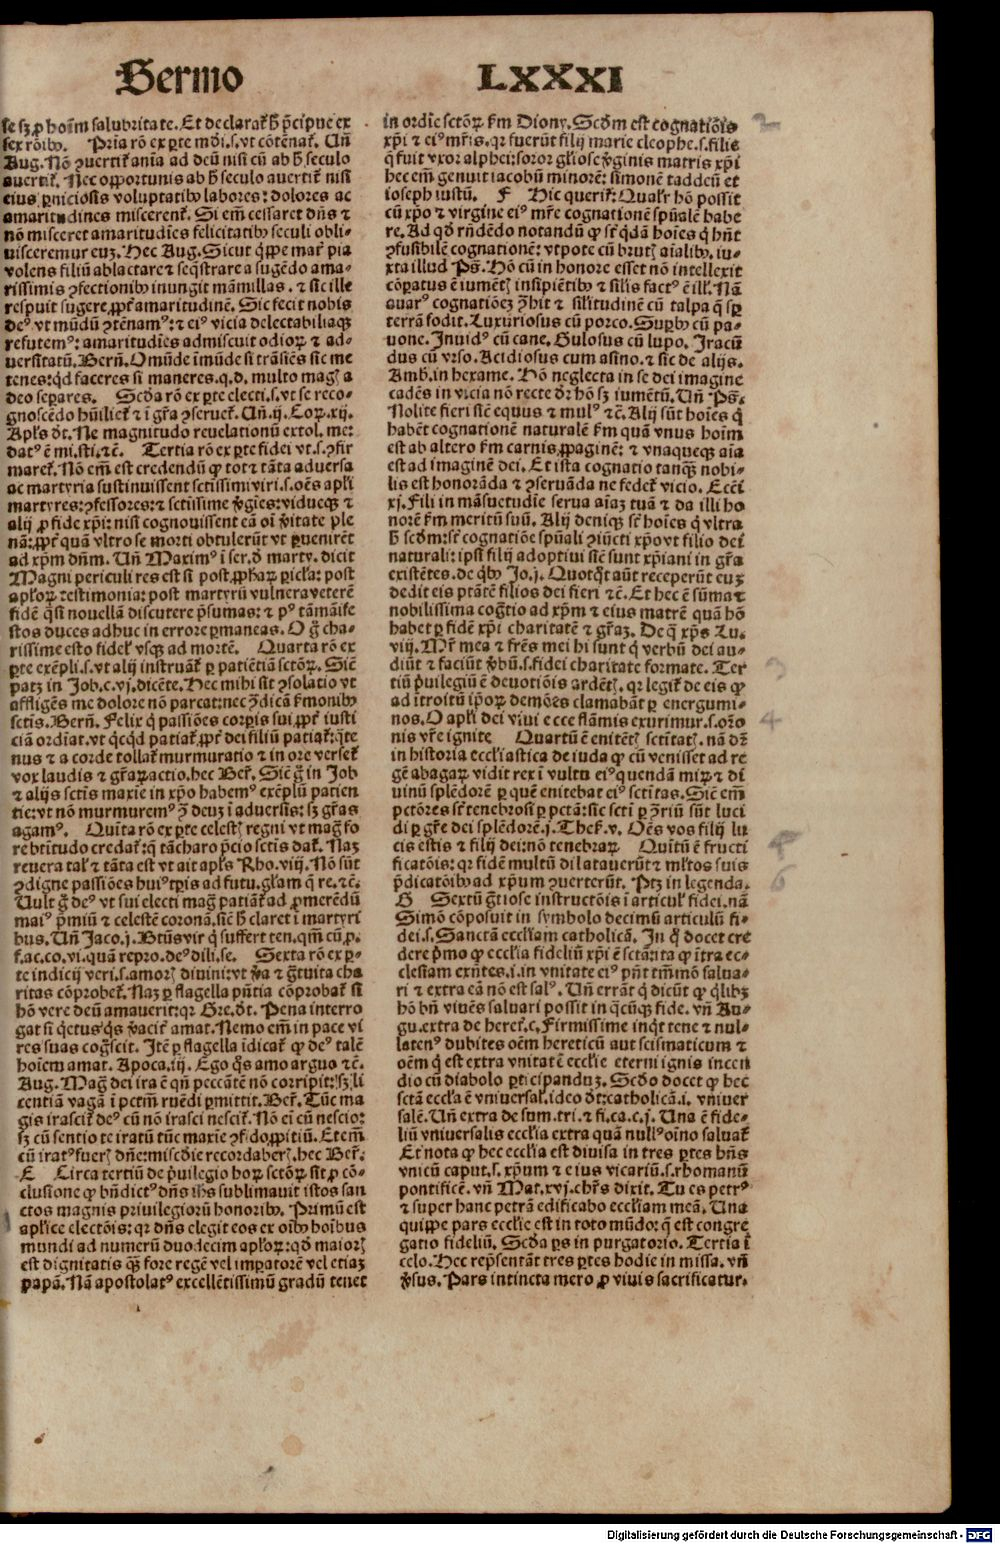 Sermo LXXXI
se sʒ ꝓ hoīm salubritate. Et declarat̄ h̄ p̄cipue ex
sex rōibꝰ. Pria rō ex ꝑte mōi.s.vt cōtēnat̄. Uñ
Aug. Nō ꝯuertit̄ anīa ad deū nisi cū ab h̄ seculo
auertit̄. Nec opportunis ab h̄ seculo auertit̄ nisi
eius ꝑniciosis voluptatibꝰ labores: dolores ac
amaritudines miscerent̄. Si em̄ cessaret dn̄s ⁊
nō misceret amaritudīes felicitatibꝰ seculi obli-
uisceremur euʒ. Hec Aug. Sicut q̄ppe mat̄ pia
volens filiū ablactare ⁊ seq̄strare a sugēdo ama-
rissimis ꝯfectionibꝰ inungit māmillas. ⁊ sic ille
respuit sugere ꝓpt̄ amaritudinē. Sic fecit nobis
deꝰ vt mūdū ꝯtēnamꝰ: ⁊ eiꝰ vicia delectabiliaqʒ
refutemꝰ: amaritudīes admiscuit odioꝝ ⁊ ad-
uersitatū. Berñ. O mūde īmūde si trāsiēs sic me
tenes: qd̄ faceres si maneres. q.d. multo magꝭ a
deo seꝑares. Scd̄a rō ex ꝑte electi.s.vt se reco-
gnoscēdo hūiliet̄ ⁊ ī gr̄a ꝯseruet̄. Uñ.ij.Coꝝ.xij.
Apl's d̄t. Ne magnitudo reuelationū extol. me:
datꝰ ē mi.sti.⁊ē. Tertia rō ex ꝑte fidei vt.s.ꝯfir
maret̄. Nō em̄ est credendū ꝙ tot ⁊ tāta aduersa
ac martyria sustinuissent sctissimi viri.s.oēs apl'i
martyres: ꝯfessores: ⁊ sctissime v̄gīes: vidueqʒ ⁊
alij ꝓ fide xp̄i: nisi cognouissent eā oī v̄itate ple
nā: ꝓpt̄ quā vltro se morti obtulerūt vt ꝑuenirēt
ad xp̄m dn̄m. Uñ Maximꝰ ī ser. d̄ marty. dicit
Magni periculi res est si post ꝓphaꝝ p̄icl'a: post
apl'oꝝ testimonia: post martyrū vulnera veterē
fidē q̄si nouellā discutere p̄sumas: ⁊ pꝰ tā māife
stos duces adhuc in errore ꝑmaneas. O ḡ cha-
rissime esto fidel' vsqʒ ad mortē. Quarta rō ex
ꝑte exēpli.s.vt alij instruāt̄ ꝑ patiētiā sctōꝝ. Sic̄
patʒ in Job.c.vj.dicēte. Hec mihi sit ꝯsolatio vt
affligēs me dolore nō parcat: nec ꝯ̄dicā s̄monibꝰ
sctis. Berñ. Felix q̄ passiōes corꝑis sui ꝓpt̄ iusti
ciā ordīat. vt qͥcqͥd patiat̄ ꝓpt̄ dei filiū patiat̄: qͥte
nus ⁊ a corde tollat̄ murmuratio ⁊ in ore verset̄
vox laudis ⁊ gr̄aꝝ actio. hec Ber̄. Sic̄ ḡ in Job
⁊ alijs sctis maxīe in xp̄o habemꝰ exēplū patien
tie: vt nō murmuremꝰ ꝯ̄ deuʒ ī aduersis: sʒ gr̄as
agamꝰ. Quīta rō ex ꝑte celestꝭ regni vt maḡ fo
re btītudo credat̄: q̄ tā charo p̄cio sctis dat̄. Naʒ
reuera tal' ⁊ tāta est vt ait apl's Rho.viij. Nō sūt
ꝯdigne passiōes huiꝰ tꝑis ad futu. gl'am q̄ re.⁊ē.
Uult ḡ deꝰ vt sui electi maḡ patiāt̄ ad ꝓmerēdū
maiꝰ p̄miū ⁊ celestē coronā. sic̄ h̄ claret ī martyri
bus. Uñ Jaco.j. Btūs vir q̄ suffert ten. qm̄ cū ꝓ.
f.ac.co.vi.quā repro.deꝰ dili.se. Sexta rō ex ꝑ-
te indicij veri.s.amorꝭ diuini: vt v̄a ⁊ ḡtuita cha
ritas cōprobet̄. Naʒ ꝑ flagella pn̄tia cōprobat̄ si
hō vere deū amauerit: qꝛ Gre. d̄t. Pena interro
gat si qͥetus qͥs v̄acit̄ amat. Nemo em̄ in pace vi
res suas coḡscit. Itē ꝑ flagella īdicat̄ ꝙ deꝰ talē
hoīem amat. Apoca.iij. Ego q̄s amo arguo ⁊ē.
Aug. Maḡ dei ira ē qn̄ peccātē nō corripit: sʒ li
centiā vagā ī pctm̄ ruēdi ꝑmittit. Ber̄. Tūc ma
gis irascit̄ deꝰ cū nō irasci nescit̄. Nō ei cū nescio:
sʒ cū sentio te iratū tūc maxīe ꝯfido ꝓpitiū. Etem̄
cū iratꝰ fuerꝭ dn̄e: misc̄die recordaberꝭ. hec Ber̄.
E Circa tertiū de p̄uilegio hoꝝ sctōꝝ sit ꝓ cō-
clusione ꝙ bn̄dictꝰ dn̄s ihs sublimauit istos san
ctos magnis priuilegiorū honoribꝰ. Primū est
apl'ice electōis: qꝛ dn̄s elegit eos ex oībꝰ hoībus
mundi ad numerū duodecim apl'oꝝ: qd̄ maiorꝭ
est dignitatis q̄ʒ fore regē vel imꝑatorē vel etiaʒ
papā. Nā apostolatꝰ excellētissimū gradū tenet
in ordīe sctōꝝ s̄m Diony. Scd̄m est cognatiōis
xp̄i ⁊ eiꝰ mr̄is. qꝛ fuerūt filij marie cleophe.s.filie
q̄ fuit vxor alphei: soror gl'iose v̄ginis matris xp̄i
hec em̄ genuit iacobū minorē: simonē taddeū et
ioseph iustū. F Hic querit̄: Qual'r hō possit
cū xp̄o ⁊ virgine eiꝰ mr̄e cognationē spūalē habe
re. Ad qd̄ rn̄dēdo notandū ꝙ st̄ q̄dā hoīes q̄ hn̄t
ꝯfusibilē cognationē: vtpote cū brutꝭ aīalibꝰ. iu-
xta illud Ps̄. Hō cū in honore esset nō intellexit
cōꝑatus ē iumētꝭ insipiētibꝰ ⁊ silis factꝰ ē ill'. Nā
auarꝰ cognatiōeʒ ꝯ̄hit ⁊ silitudinē cū talpa q̄ sꝑ
terrā fodit. Luxuriosus cū porco. Suꝑbꝰ cū pa-
uone. Inuidꝰ cū cane. Gulosus cū lupo. Iracū
dus cū vrso. Acidiosus cum asino. ⁊ sic de alijs.
Amb. in hexame. Hō neglecta in se dei imagine
cadēs in vicia nō recte d̄r hō sʒ iumētū. Uñ Ps̄.
Nolite fieri sic̄ equus ⁊ mulꝰ ⁊ē. Alij sūt hoīes q̄
habēt cognationē naturalē s̄m quā vnus hoīm
est ab altero s̄m carnis ꝓpaginē: ⁊ vnaqueqʒ aīa
est ad imaginē dei. Et ista cognatio tanqʒ nobi-
lis est honorāda ⁊ ꝯseruāda ne fedet̄ vicio. Ecci
xj. Fili in māsuetudīe serua aīaʒ tuā ⁊ da illi ho
norē s̄m meritū suū. Alij deniqʒ st̄ hoīes q̄ vltra
h̄ scd̄m: st̄ cognatiōe spūali ꝯiūcti xp̄o vt filio dei
naturali: ipsi filij adoptiui sic̄ sunt xp̄iani in gr̄a
existētes. de qͥbꝰ Jo.j. Quotqͥt aūt receperūt euʒ
dedit eis ptātē filios dei fieri ⁊ē. Et hec ē sūma ⁊
nobilissima coḡtio ad xp̄m ⁊ eius matrē quā hō
habet ꝑ fidē xp̄i charitatē ⁊ gr̄aʒ. De q̄ xp̄s Lu.
viij. Mr̄ mea ⁊ fr̄es mei hi sunt q̄ verbū dei au-
diūt ⁊ faciūt v̄bū.s.fidei charitate formate. Ter
tiū p̄uilegiū ē deuotiōis ardētꝭ. qꝛ legit̄ de eis ꝙ
ad ītroitū ip̄oꝝ demōes clamabāt ꝑ energumi-
nos. O apl'i dei viui ecce flāmis exurimur.s.or̄o
nis vr̄e ignite Quartū ē enitētꝭ sctitatꝭ. nā d̄r
in historia eccl'iastica de iuda ꝙ cū venisset ad re
gē abagaꝝ vidit rex ī vultu eiꝰ quendā miꝝ ⁊ di
uinū splēdorē ꝑ quē enitebat̄ eiꝰ sctitas. Sic em̄
pctōres st̄ tenebrosi ꝑ pctā: sic scti ꝑ ꝯ̄riū sūt luci
di ꝑ gr̄e dei splēdorē.j.Thes̄.v. Oēs vos filij lu
cis estis ⁊ filij dei: nō tenebraꝝ Quītū ē fructi
ficatōis: qꝛ fidē multū dilatauerūt ⁊ ml'tos suis
p̄dicatōibꝰ ad xp̄um ꝯuerterūt. Ptʒ in legenda.
G Sextū ḡtiose instructōis ī articul' fidei. nā
Simō cōposuit in symbolo decimū articulū fi-
dei.s.Sanctā eccl'iam catholicā. In q̄ docet cre
dere p̄mo ꝙ eccl'ia fideliū xp̄i ē sctā: ita ꝙ ītra ec-
clesiam exn̄tes.i.in vnitate eiꝰ pn̄t tm̄mō salua-
ri ⁊ extra eā nō est salꝰ. Uñ errāt q̄ dicūt ꝙ q̄libʒ
hō bn̄ viuēs saluari possit in q̄cūqʒ fide. vñ Au-
gu. extra de heret̄.c.Firmissime inqͥt tene ⁊ nul-
latenꝰ dubites oēm hereticū aut scismaticum ⁊
oēm q̄ est extra vnitatē eccl'ie eterni ignis incen
dio cū diabolo ꝑticipanduʒ. Scd̄o docet ꝙ hec
sctā eccl'a ē vniuersal'. ideo d̄r: catholicā.i.vniuer
salē. Uñ extra de sum.tri.⁊ fi.ca.c.j. Una ē fide-
liū vniuersalis eccl'ia extra quā nullꝰ oīno saluat̄
Et nota ꝙ hec eccl'ia est diuisa in tres ꝑtes hn̄s
vnicū caput.s.xp̄um ⁊ eius vicariū.s.rhomanū
pontificē. vñ Mat.xvj.chr̄s dixit. Tu es petrꝰ
⁊ super hanc petrā edificabo eccl'iam meā. Una
quippe pars eccl'ie est in toto mūdo: q̄ est congre
gatio fideliū. Scd̄a ꝑs in purgatorio. Tertia ī
celo. Hec rep̄sentāt tres ꝑtes hodie in missa. vñ
v̄sus. Pars intincta mero ꝓ viuis sacrificatur.
Digitalisierung gefördert durch die Deutsche Forschungsgemeinschaft - DFG